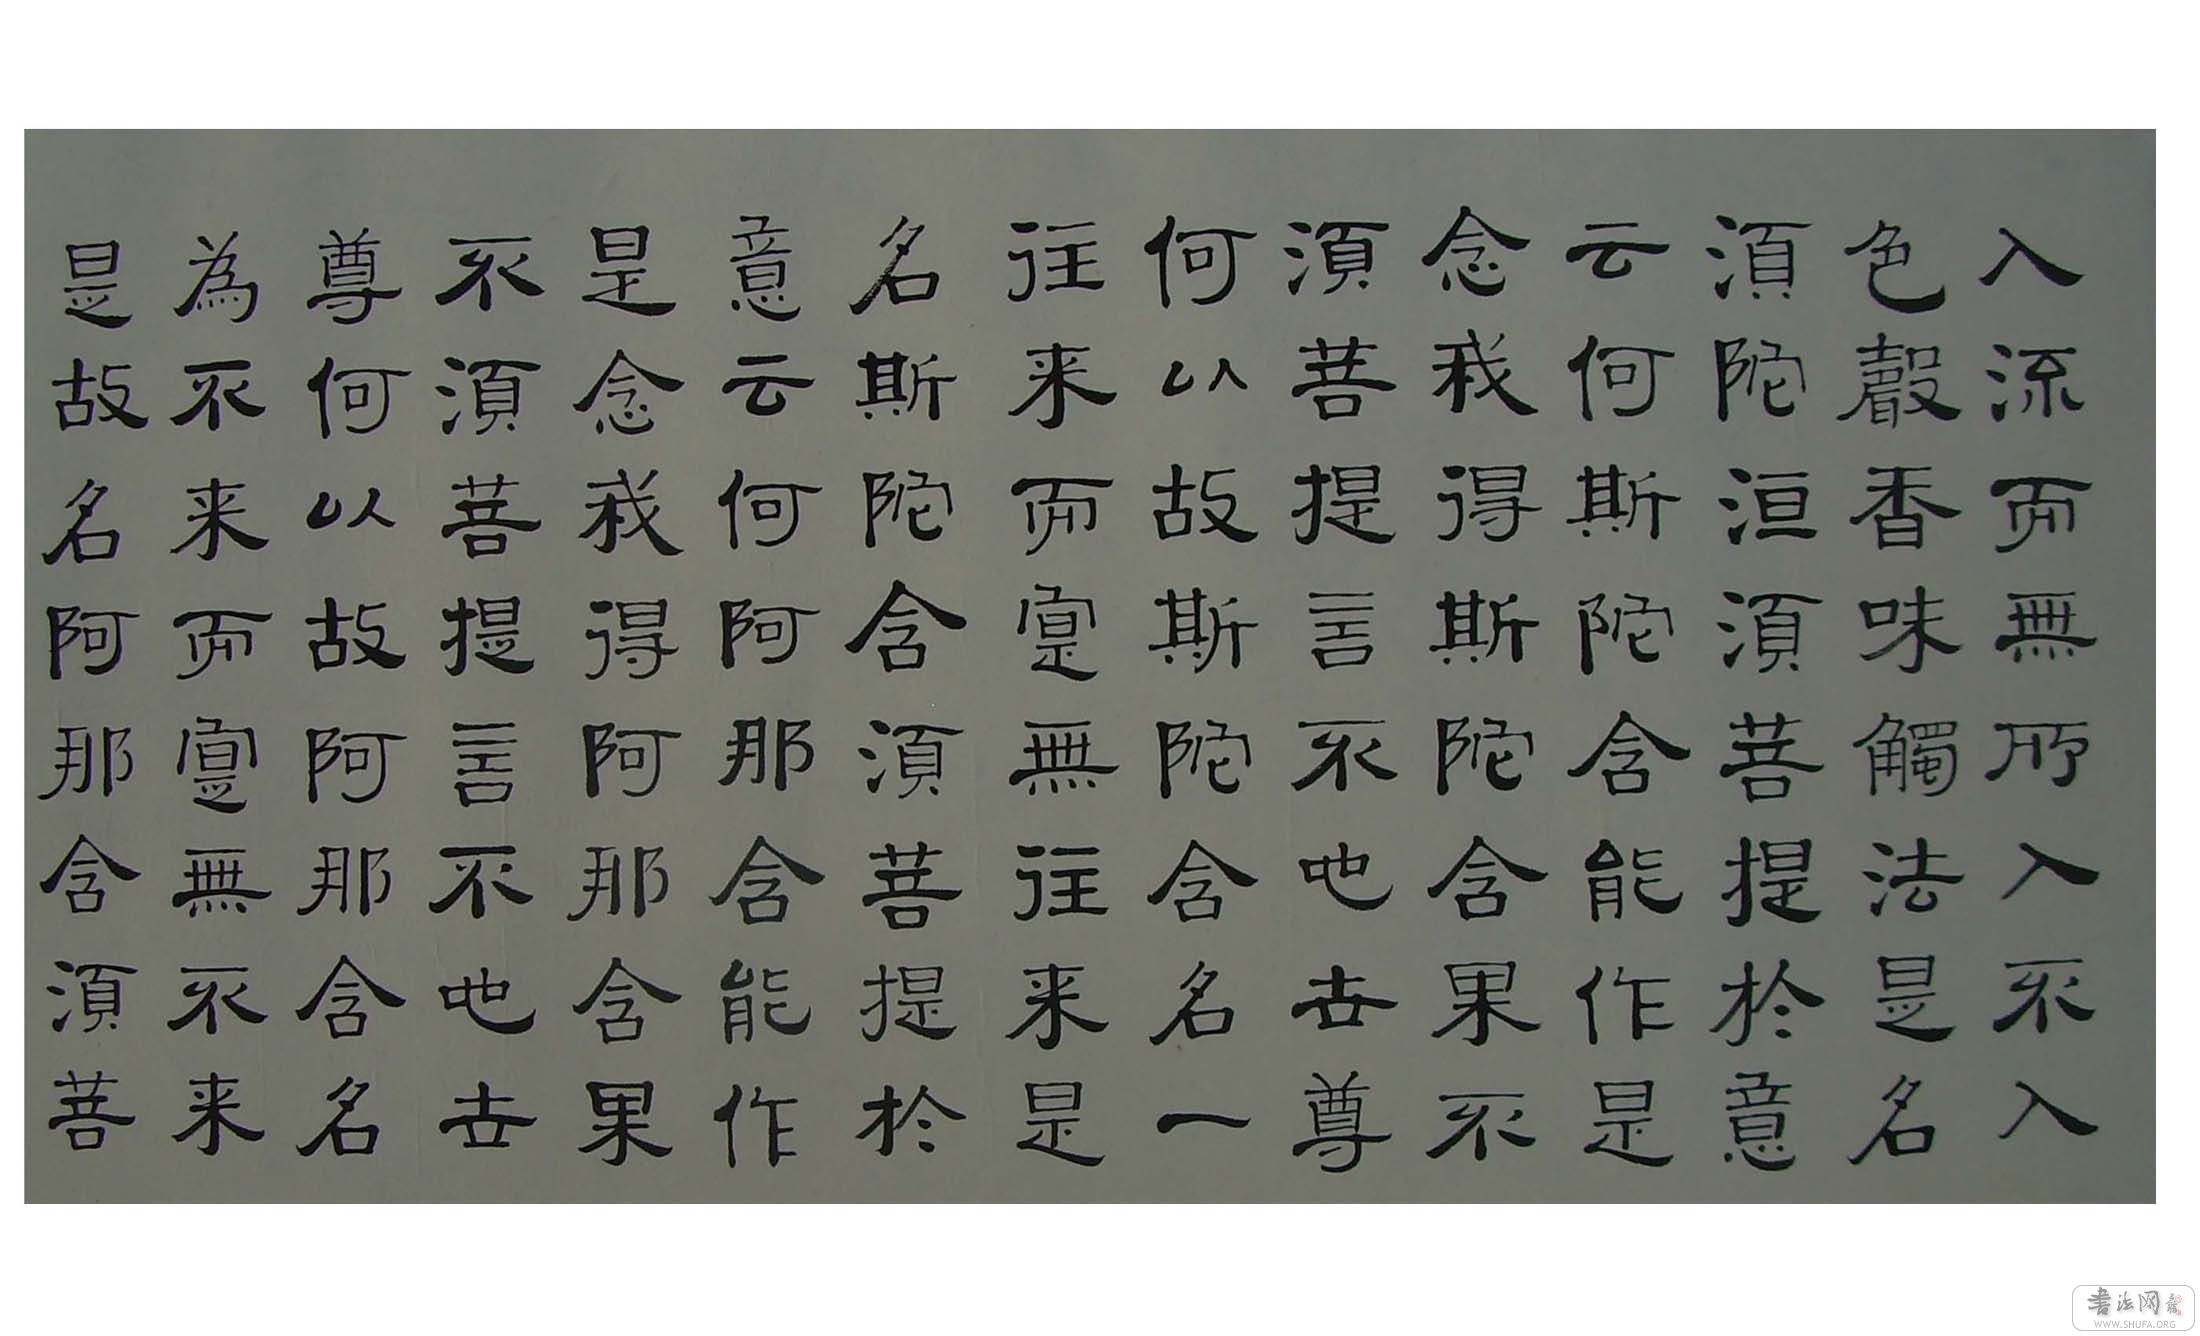 入流而無所入不入
色聲香味觸法是名
須陀洹須菩提於意
云何斯陀含能作是
念我得斯陀含果不
須菩提言不也世尊
何以故斯陀含名一
往来而寔無往来是
名斯陀含須菩提於
意云何阿那含能作
是念我得阿那含果
不須菩提言不也世
尊何以故阿那含名
為不来而寔無不来
是故名阿那含須菩
書法网
WWW.SHUFA.ORG